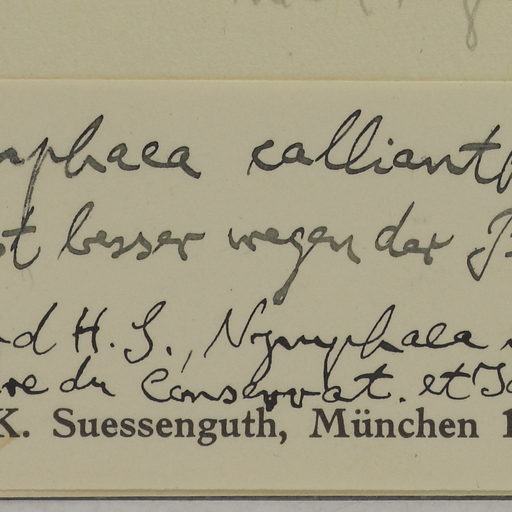 mphaea calliant
st besser wegen der
nd H. S., Nymphaea
re du Conservat. et
K. Suessenguth, München 1